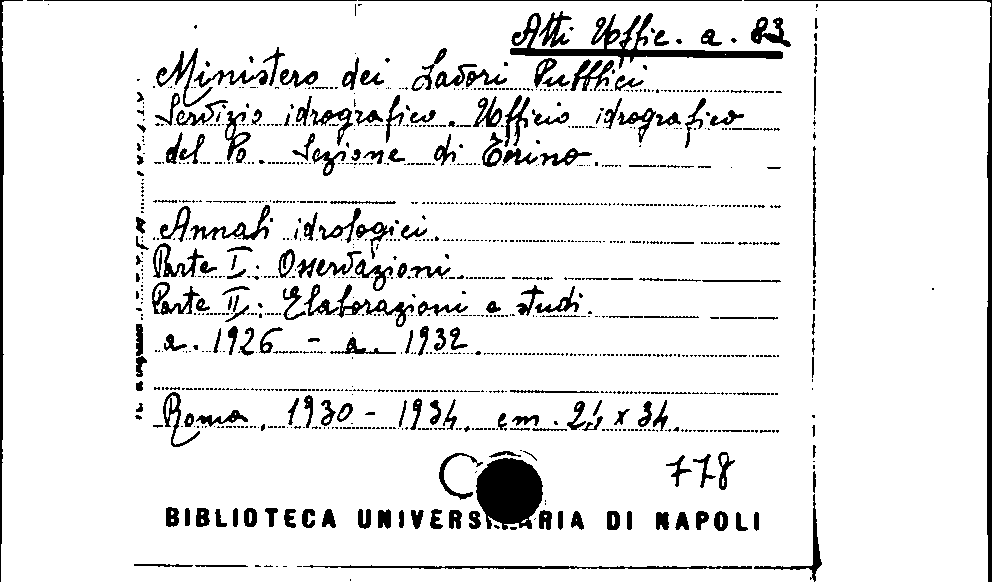 Atti Uffic. a. 83
Ministero dei Lavori Pubblici
Servizio idrografico. Ufficio idrografico
del Po. Sezione di Torino.
Annali idrologici.
Parte I: Osservazioni.
Parte II: Elaborazioni e studi.
a. 1926 - a. 1932.
Roma, 1930 - 1934. cm. 24 x 34.
778
BIBLIOTECA UNIVERSITARIA DI NAPOLI